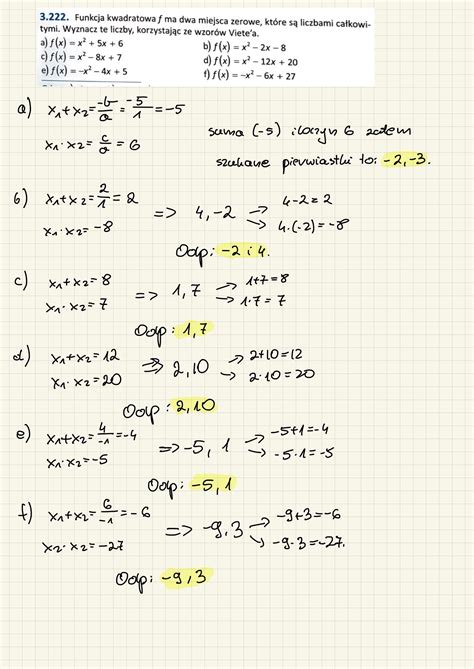 3.222. Funkcja kwadratowa f ma dwa miejsca zerowe, które są liczbami całkowi-
tymi. Wyznacz te liczby, korzystając ze wzorów Viete'a.
a) f(x) = x² + 5x + 6 b) f(x) = x² − 2x − 8
c) f(x) = x² − 8x + 7 d) f(x) = x² − 12x + 20
e) f(x) = −x² − 4x + 5 f) f(x) = −x² − 6x + 27
a) x₁+x₂ = -b/a = -5/1 = -5
suma (-5) iloczyn 6 zatem
x₁·x₂ = c/a = 6
szukane pierwiastki to: -2, -3.
b) x₁+x₂ = 2/1 = 2
x₁·x₂ = -8
=> 4, -2 → 4-2=2
→ 4·(-2)=-8
Odp: -2 i 4.
c) x₁+x₂ = 8
x₁·x₂ = 7
=> 1,7 → 1+7=8
→ 1·7=7
Odp: 1,7
d) x₁+x₂ = 12
x₁·x₂ = 20
=> 2,10 → 2+10=12
→ 2·10=20
Odp: 2,10
e) x₁+x₂ = 4/-1 = -4
x₁·x₂ = -5
=> -5, 1 → -5+1=-4
→ -5·1=-5
Odp: -5,1
f) x₁+x₂ = 6/-1 = -6
x₂·x₂ = -27
=> -9,3 → -9+3=-6
→ -9·3=-27.
Odp: -9,3